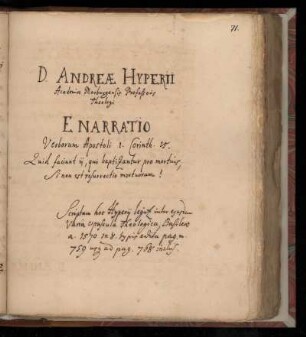 71.
D. ANDREÆ HYPERII
Academiæ Marburgensis Professoris
Theologi
ENARRATIO
Verborum Apostoli 1. Corinth. 15.
Quid faciunt ij, qui baptizantur pro mortuis,
si non est resurrectio mortuorum?
Scriptum hoc Hyperij legitur inter ejusdem
Varia opuscula Theologica, Basileæ
a. 1570 in 8. typis edita pag. m.
759 usq ad pag. 768 inclus.